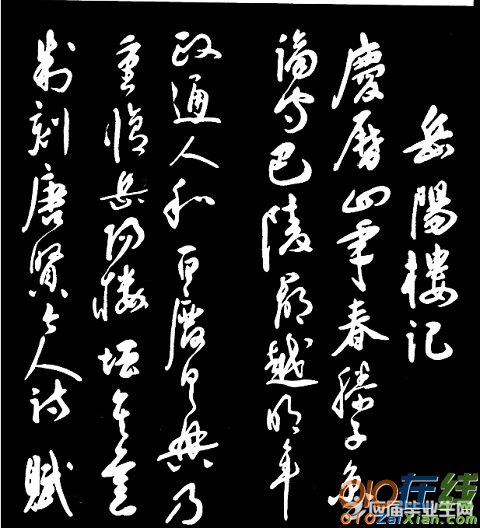 岳陽樓记
慶曆四年春滕子京
謫守巴陵郡越明年
政通人和百廢具興乃
重脩岳陽樓增其舊
制刻唐賢今人詩賦
010在线
应届毕业生网
010zaixian.com